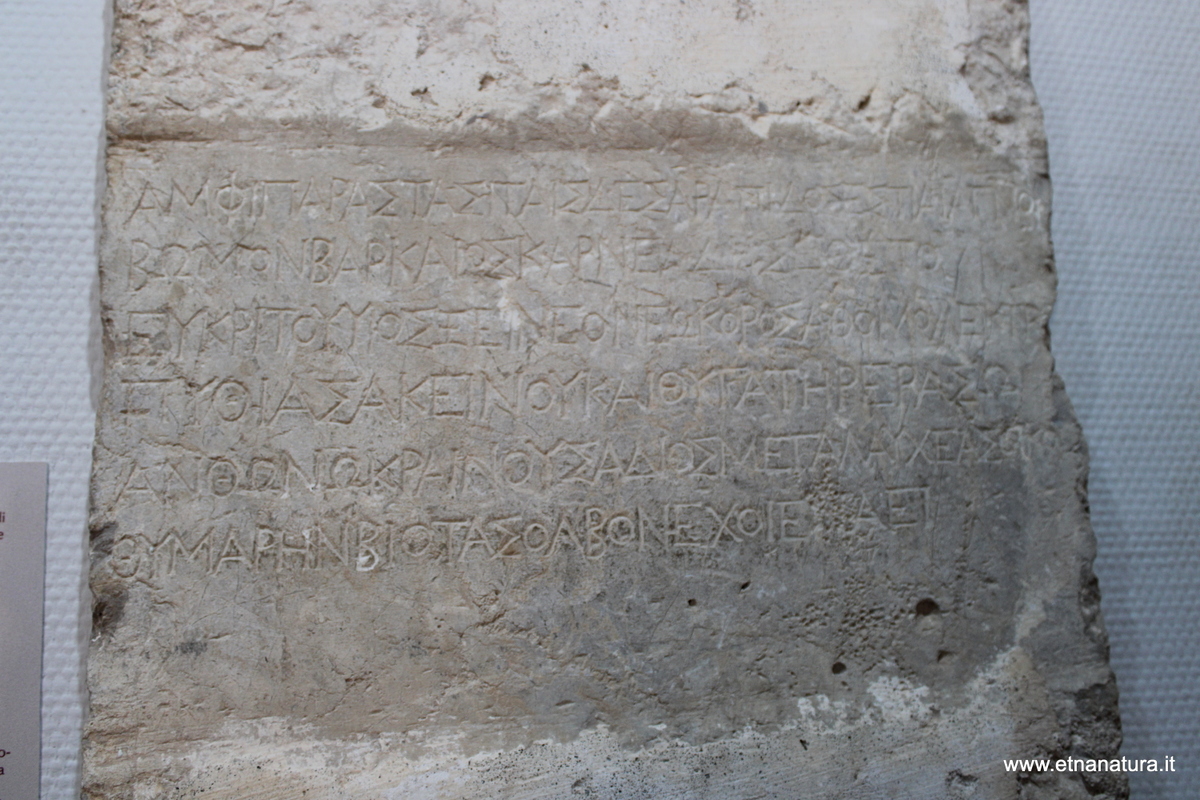 ΑΜΦΙΠΑΡΑΣΤΑΣΙΤΑΙΣΔΕΣΑΡΑΠΙΔΟΣΕΣΤΙΑΙΑΓΝΟΝ
ΒΩΜΟΝΒΑΡΚΑΙΟΣΚΑΡΝΕΑΔΑΣ
ΕΥΚΡΙΤΟΥΥΙΟΣΞΕΙΝΕΟΝΕΩΚΟΡΟΣΑΘΟΜΟΛΕΚΤΡ
ΠΥΘΙΑΣΑΚΕΙΝΟΥΚΑΙΘΥΓΑΤΗΡΕΡΑΣΩ
ΑΝΘΩΝΩΚΡΑΙΝΟΥΣΑΔΙΟΣΜΕΓΑΛΑΥΧΕΑΣΟΙΚΟ
ΘΥΜΑΡΗΝΒΙΟΤΑΣΟΛΒΟΝΕΧΟΙΕΝΑΕΙ
www.etnanatura.it